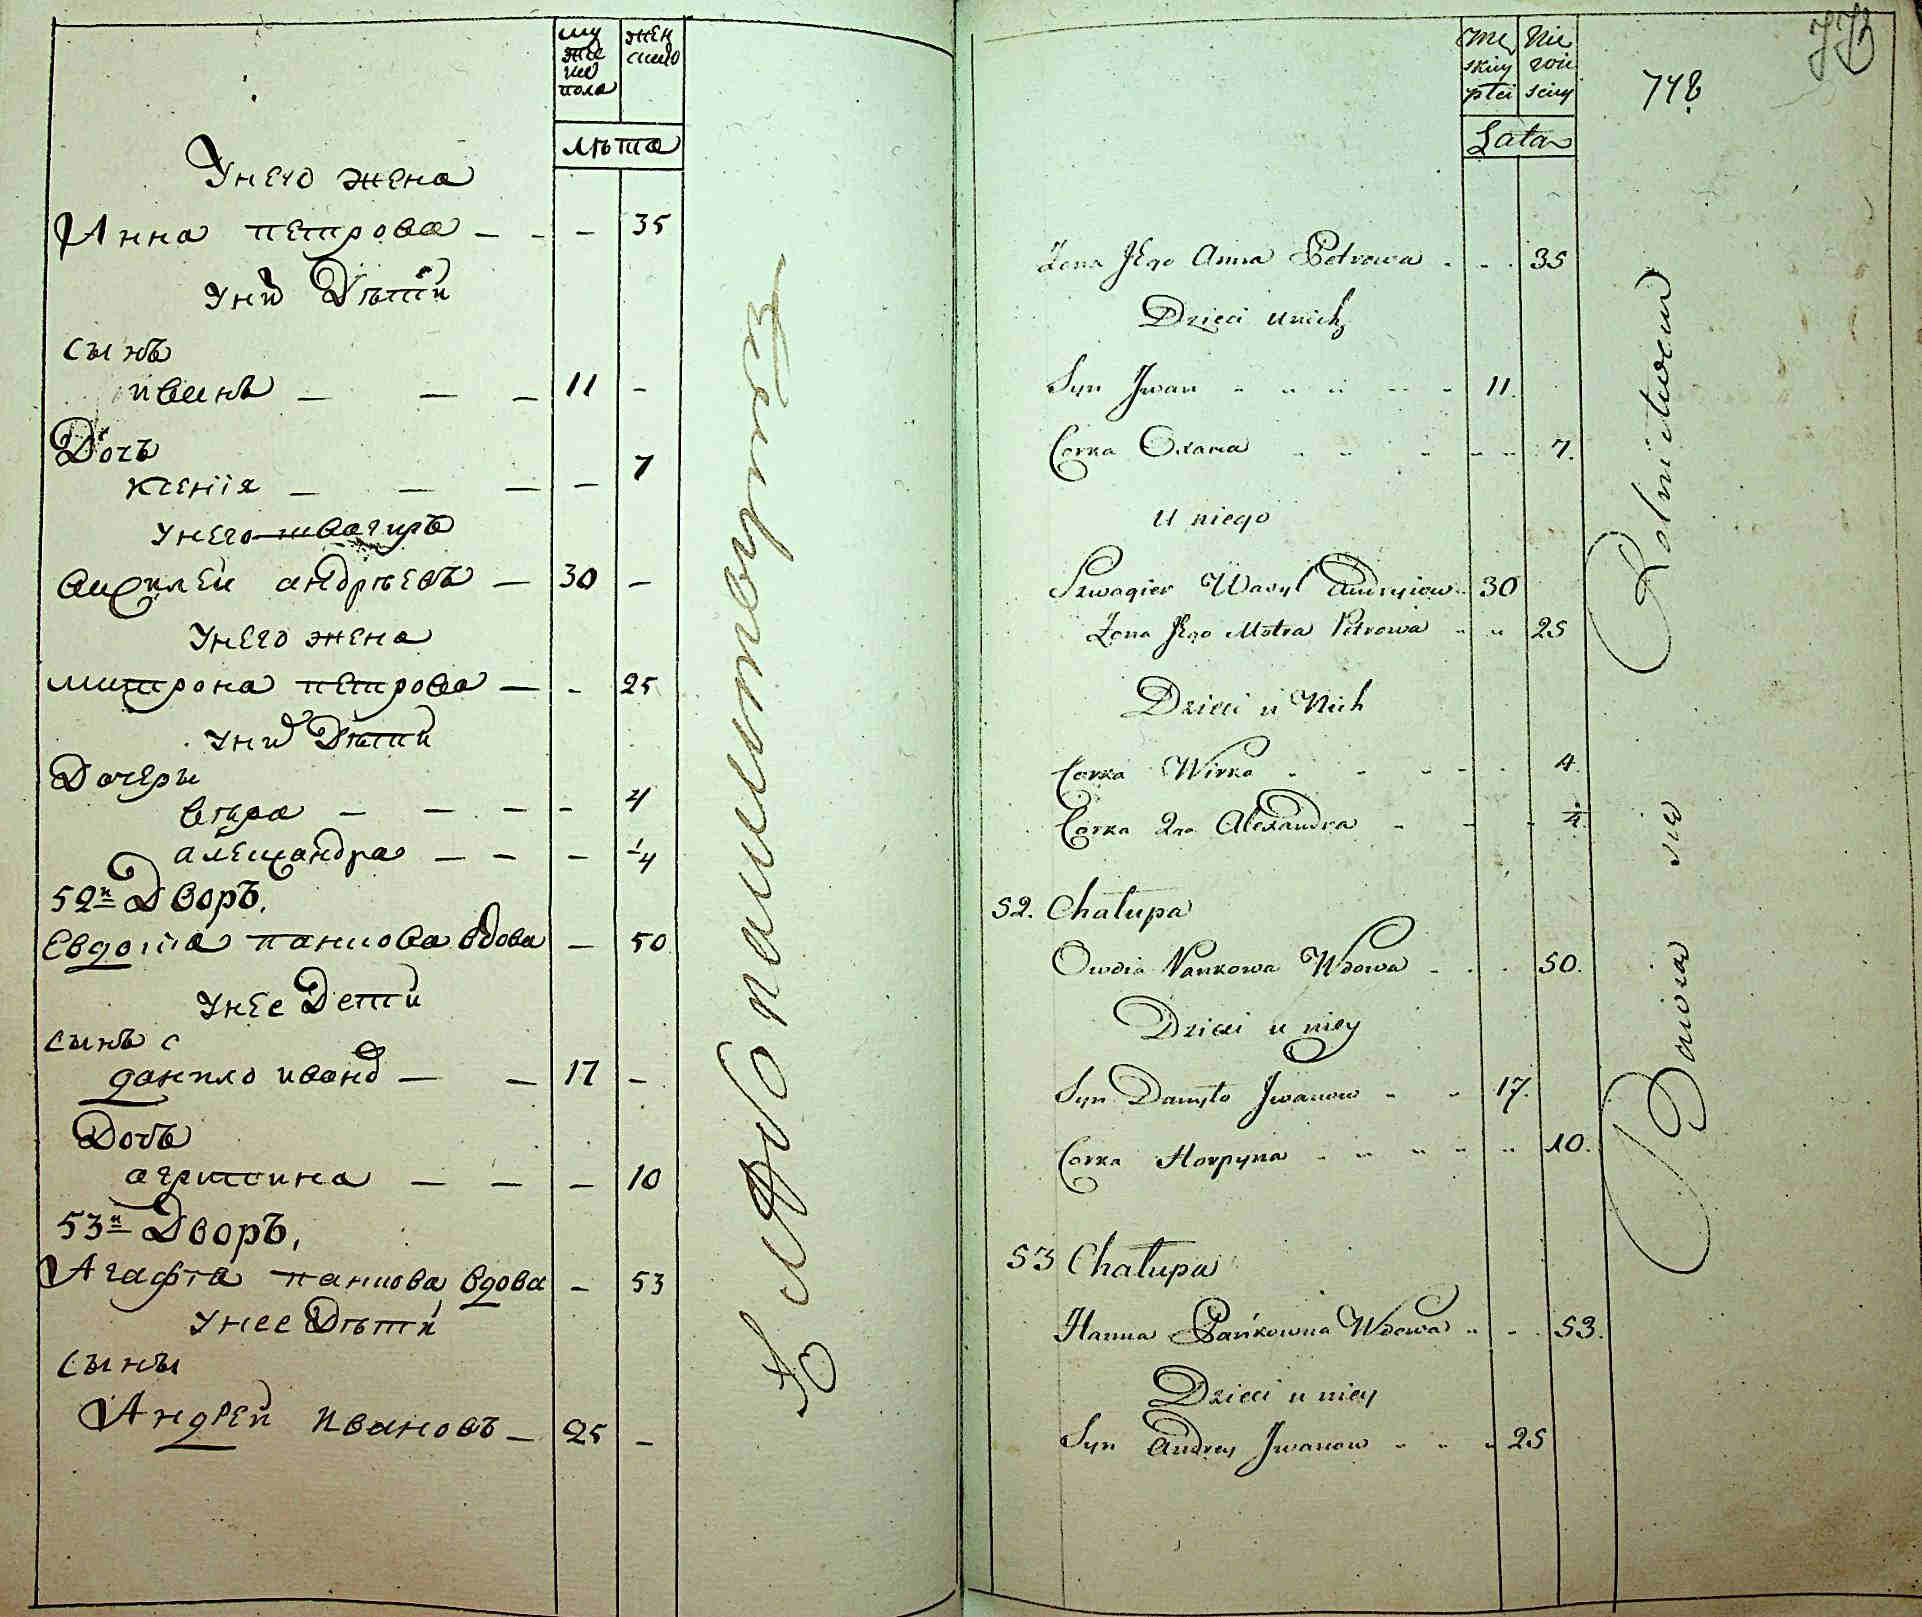 му
жес
ко
пола
жен
скаго
лѣта
Унего жена
Анна петрова — — — 35
Уних Дѣти
сынъ
иванъ — — — 11 —
Дочъ
ксенія — — — — 7
Унего швагиръ
василеи андрѣевъ — 30 —
Унего жена
матрона петрова — - 25
Уних Дѣти
Дочеры
вѣра — — — - 4
александра — — — 1/4
52и Дворъ,
Евдокіа панкова вдова — 50
Унее Дети
сынъ
данило иванов — — 17 -
Дочъ
агрипина — — — 10
53и Дворъ,
Агафіа панкова вдова — 53
Унее Дѣти
сыны
Андреи Ивановъ — 25 —
Хлѣбопашествуютъ
Mę
skiey
płci
Nie
wie
sciey
Lata
748
Zona Jego Anna Petrowa - - - 35
Dzieci unich
Syn Jwan - - - - - 11.
Corka Oxana - - - - - 7.
U niego
Szwagier Wasyl Andryiew - 30
Zona Jego Motra Petrowa - - 25
Dzieci u Nich
Corka Wirka - - - - - 4.
Corka 2ga Alexandra - - - 1/4.
52. Chałupa
Owdia Pankowa Wdowa - - - 50.
Dzieci u niey
Syn Danyło Jwanow - - 17.
Corka Horpyna - - - - - 10.
53 Chałupa
Hanna Pańkowna Wdowa - - - 53.
Dzieci u niey
Syn Andrey Jwanow - - - 25
Bawia sie Rolnictwem